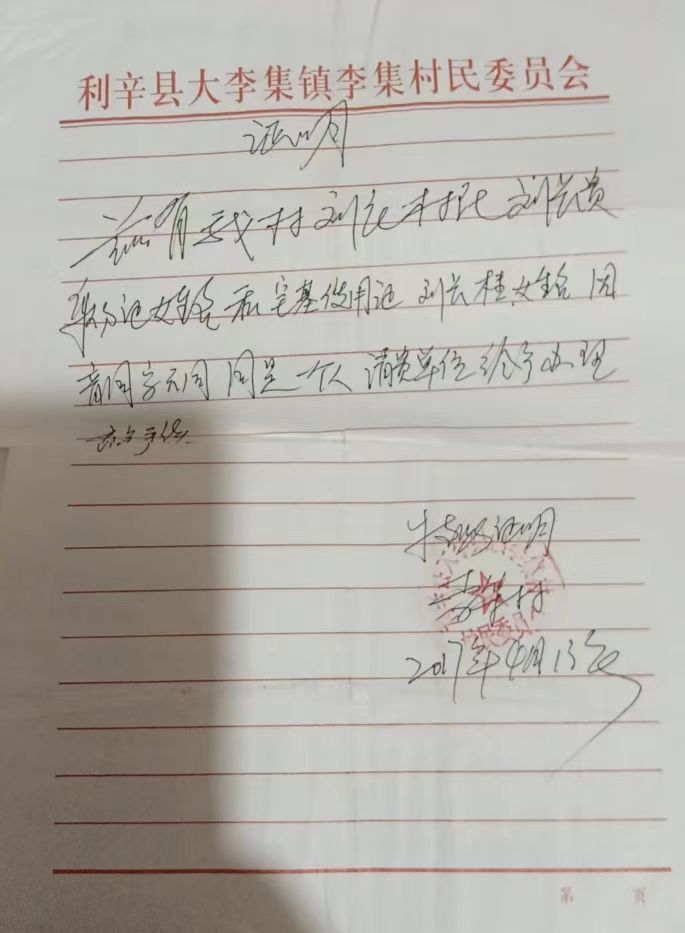 利辛县大李集镇李集村民委员会
证明
兹有我村刘 村民刘长贵
身份证姓名和宅基使用证刘长桂姓名因
音同字不同同是一个人请贵单位给予办理
手续
特此证明
李集村
2017年4月13号
第 页